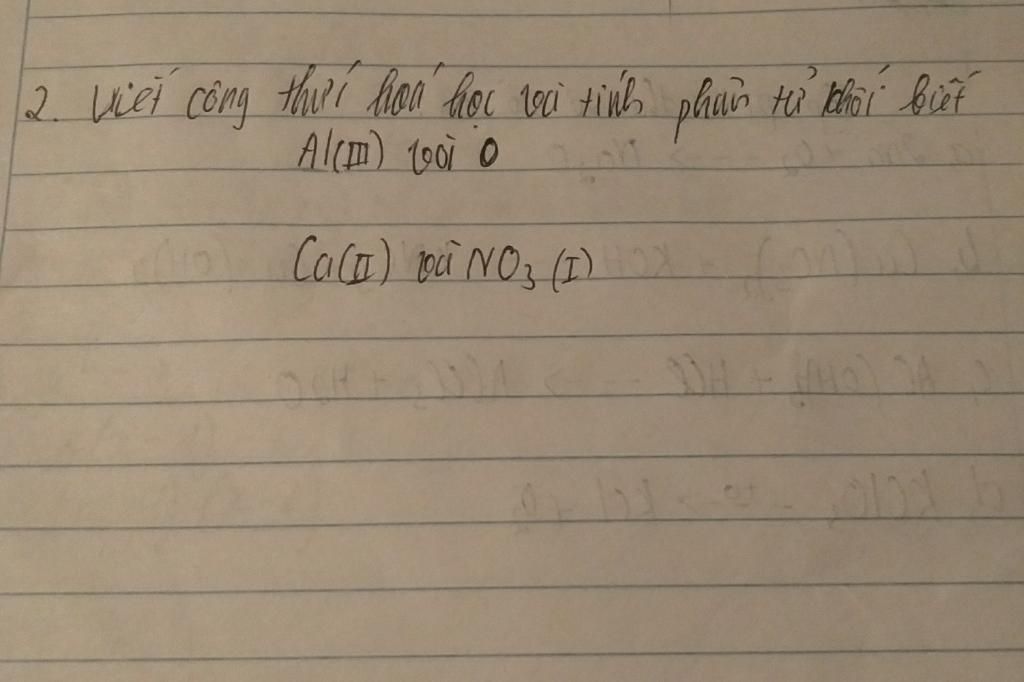 2. Viết công thức hoá học và tính phân tử khối biết
Al(III) với O
Ca(II) và NO₃ (I)